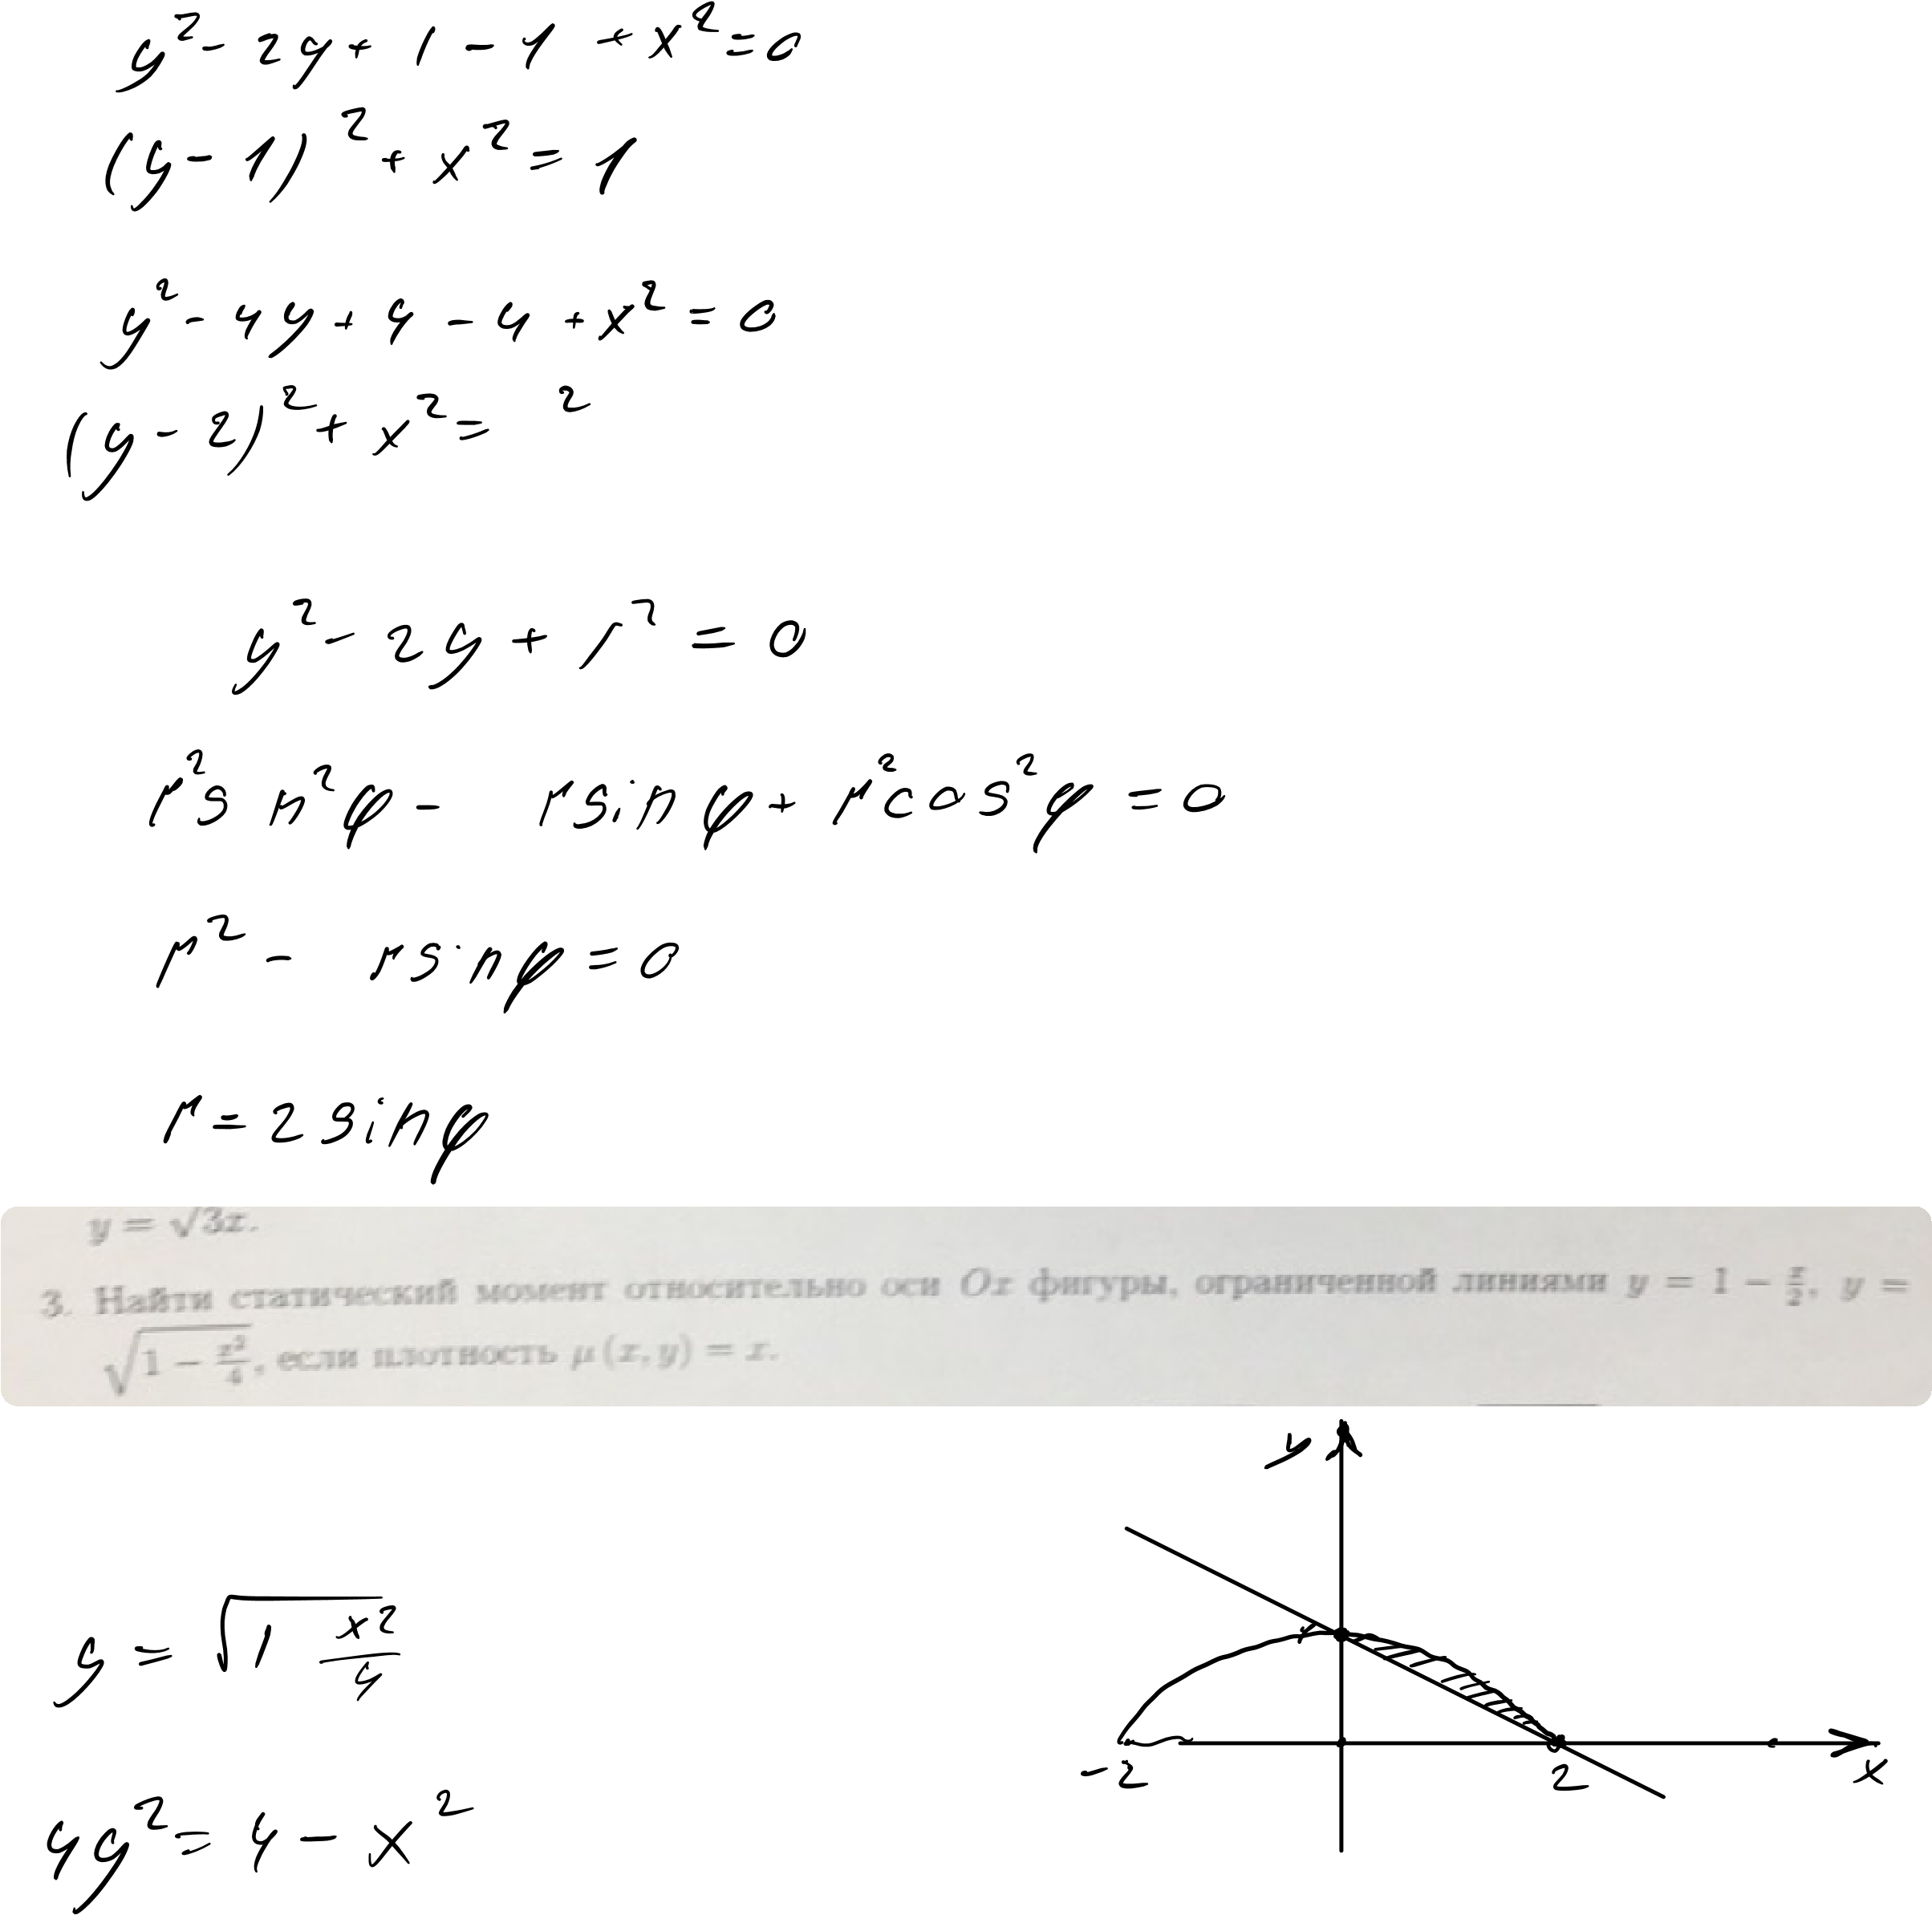 y² - 2y + 1 - 1 + x² = 0
(y - 1)² + x² = 1
y² - 4y + 4 - 4 + x² = 0
(y - 2)² + x² = ²
y² - 2y + r² = 0
r²s n²φ - rsinφ + r²cos²φ = 0
r² - rsinφ = 0
r = 2sinφ
y = √3x.
3. Найти статический момент относительно оси Ox фигуры, ограниченной линиями y = 1 - x/2, y =
√(1 - x²/4), если плотность μ(x, y) = x.
y
y = √(1 x²/4)
-2
2
x
4y² = 4 - x²